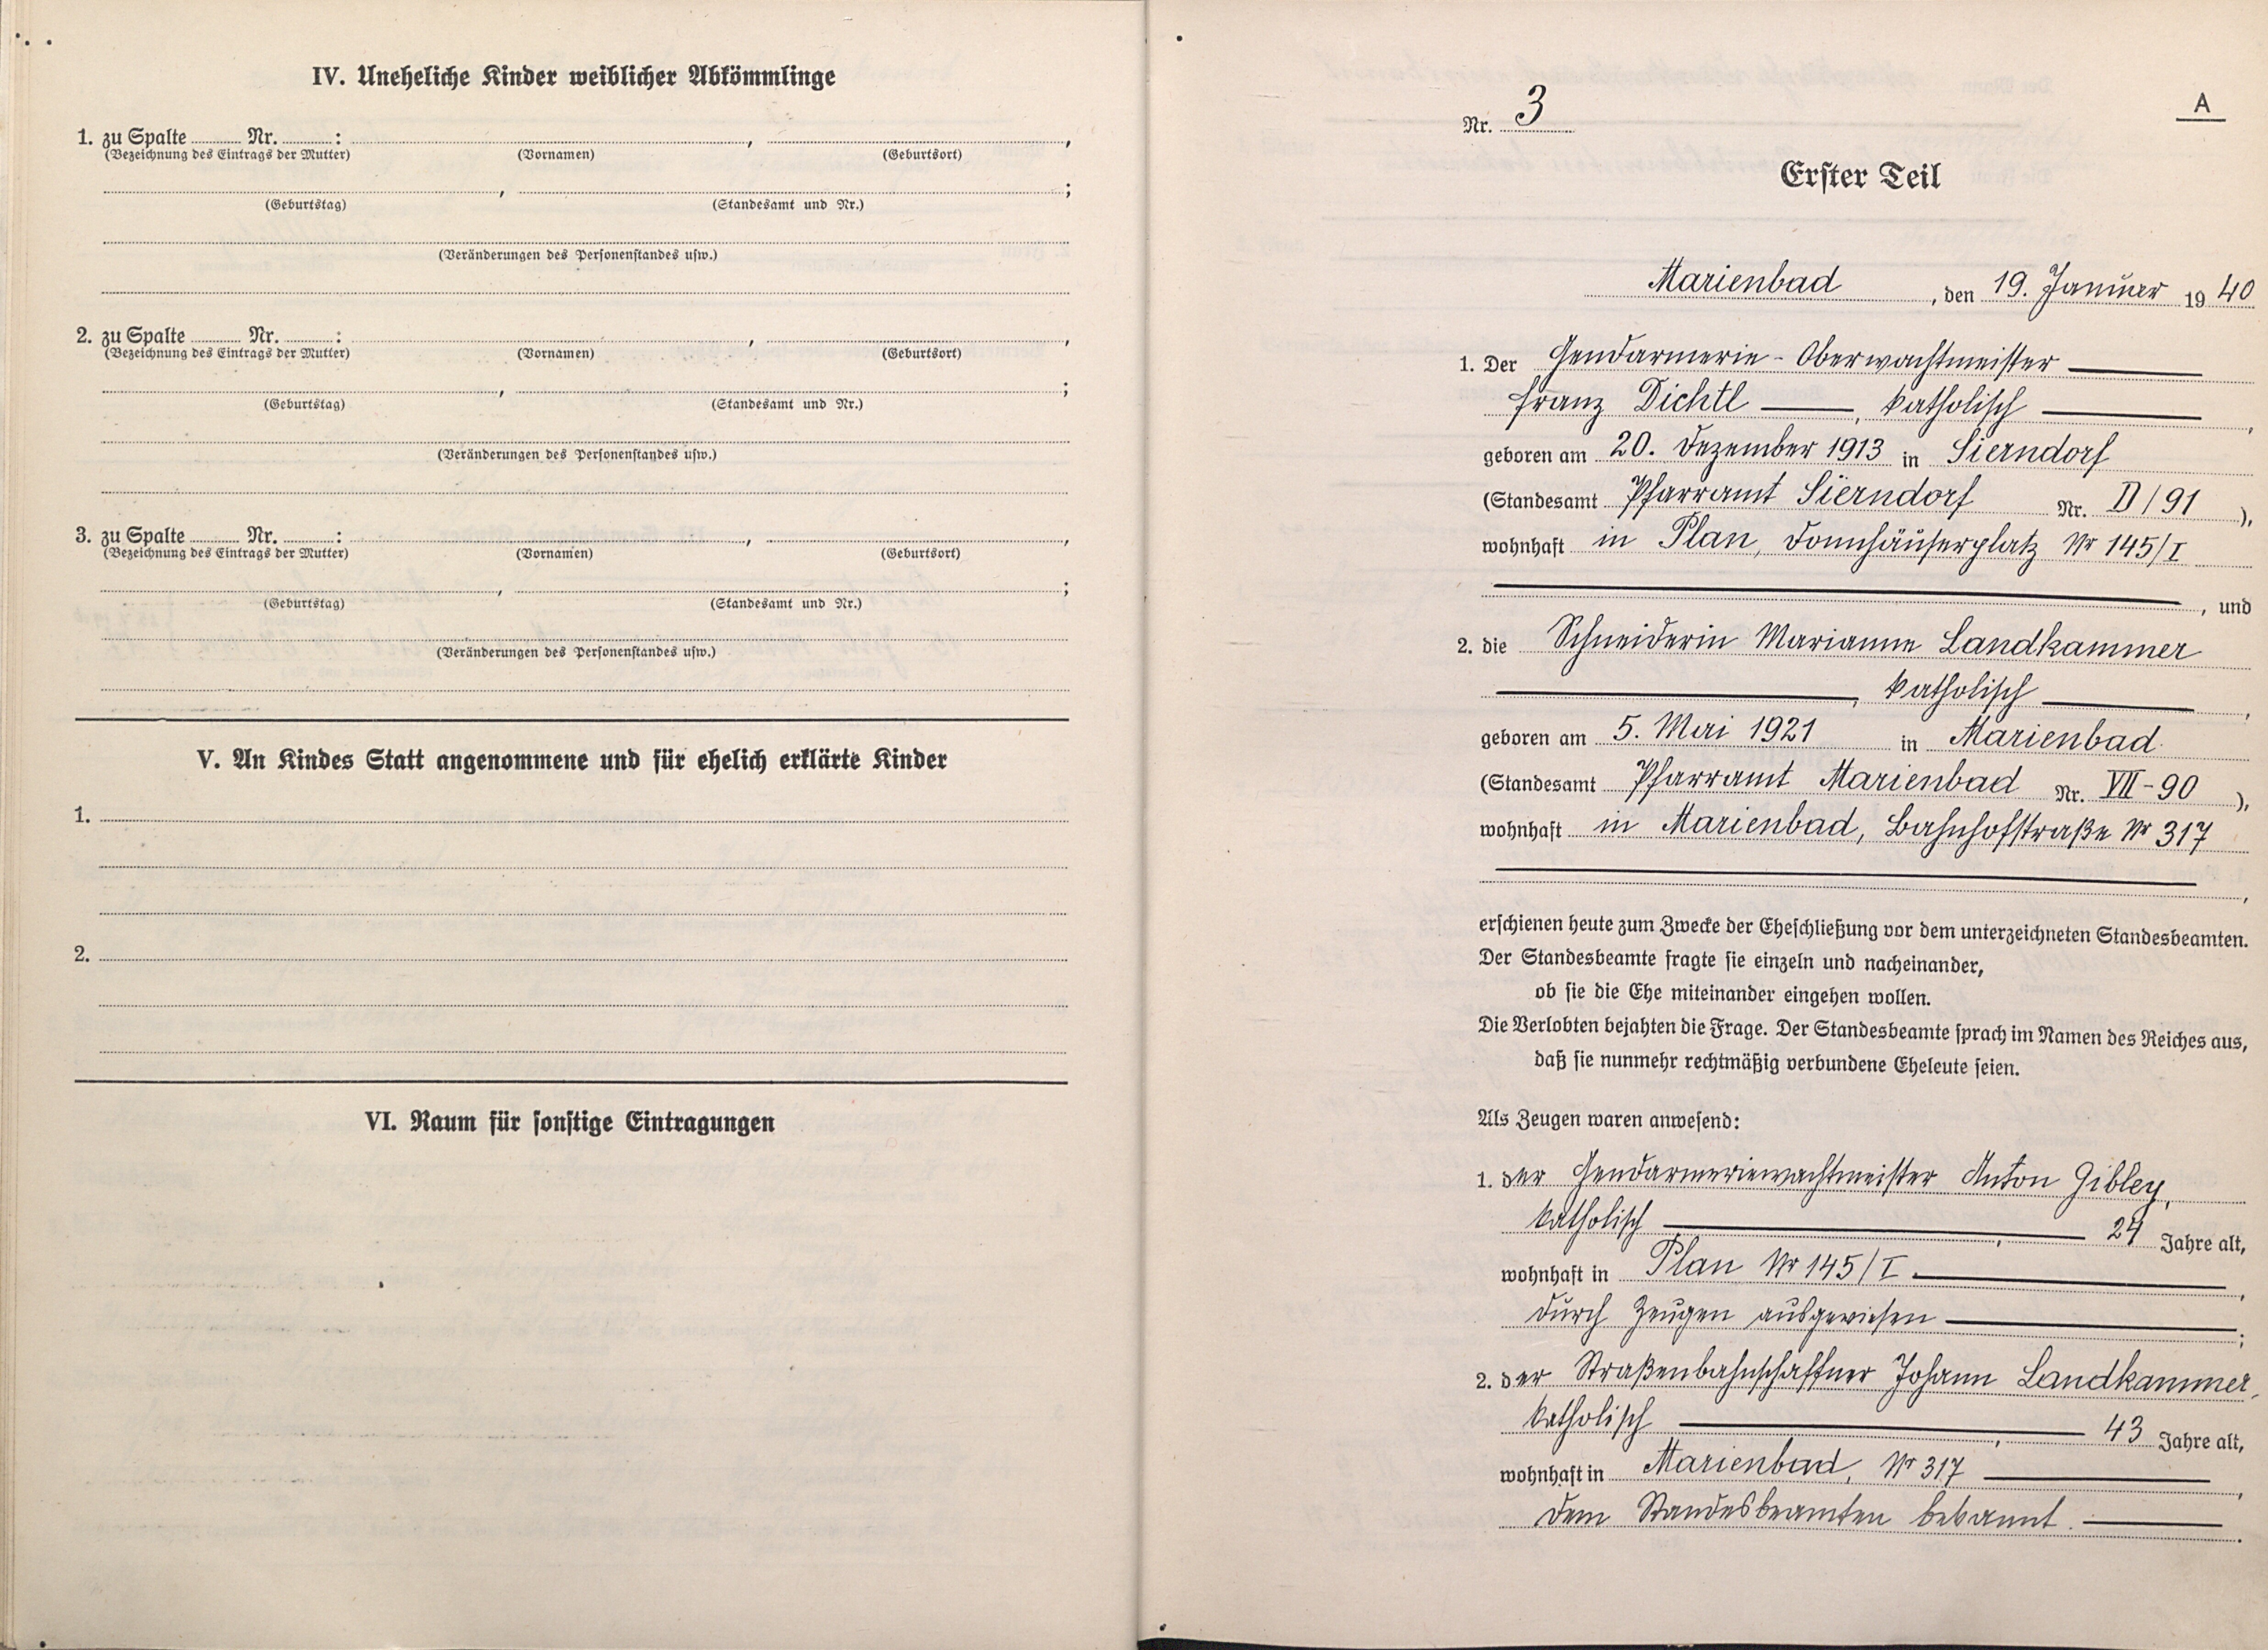 IV. Uneheliche Kinder weiblicher Abkömmlinge
1. zu Spalte ........ Nr. ........: ........, ........,
(Bezeichnung des Eintrags der Mutter) (Vornamen) (Geburtsort)
(Geburtstag) , (Standesamt und Nr.) ;
(Veränderungen des Personenstandes usw.)
2. zu Spalte ........ Nr. ........: ........, ........,
(Bezeichnung des Eintrags der Mutter) (Vornamen) (Geburtsort)
(Geburtstag) , (Standesamt und Nr.) ;
(Veränderungen des Personenstandes usw.)
3. zu Spalte ........ Nr. ........: ........, ........,
(Bezeichnung des Eintrags der Mutter) (Vornamen) (Geburtsort)
(Geburtstag) , (Standesamt und Nr.) ;
(Veränderungen des Personenstandes usw.)
V. An Kindes Statt angenommene und für ehelich erklärte Kinder
1.
2.
VI. Raum für sonstige Eintragungen
A
Nr. 3
Erster Teil
Marienbad, den 19. Januar 1940
1. Der Gendarmerie-Oberwachtmeister
Franz Dichtl, katholisch,
geboren am 20. Dezember 1913 in Sierndorf
(Standesamt Pfarramt Sierndorf Nr. II/91),
wohnhaft in Plan, Donnhäuserplatz Nr 145/I
, und
2. die Schneiderin Marianne Landkammer
, katholisch,
geboren am 5. Mai 1921 in Marienbad
(Standesamt Pfarramt Marienbad Nr. VII-90),
wohnhaft in Marienbad, Bahnhofstraße Nr 317
,
erschienen heute zum Zwecke der Eheschließung vor dem unterzeichneten Standesbeamten.
Der Standesbeamte fragte sie einzeln und nacheinander,
ob sie die Ehe miteinander eingehen wollen.
Die Verlobten bejahten die Frage. Der Standesbeamte sprach im Namen des Reiches aus,
daß sie nunmehr rechtmäßig verbundene Eheleute seien.
Als Zeugen waren anwesend:
1. der Gendarmeriewachtmeister Anton Gibley,
katholisch, 24 Jahre alt,
wohnhaft in Plan Nr 145/I,
durch Zeugen ausgewiesen;
2. der Straßenbahnschaffner Johann Landkammer,
katholisch, 43 Jahre alt,
wohnhaft in Marienbad, Nr 317,
dem Standesbeamten bekannt.